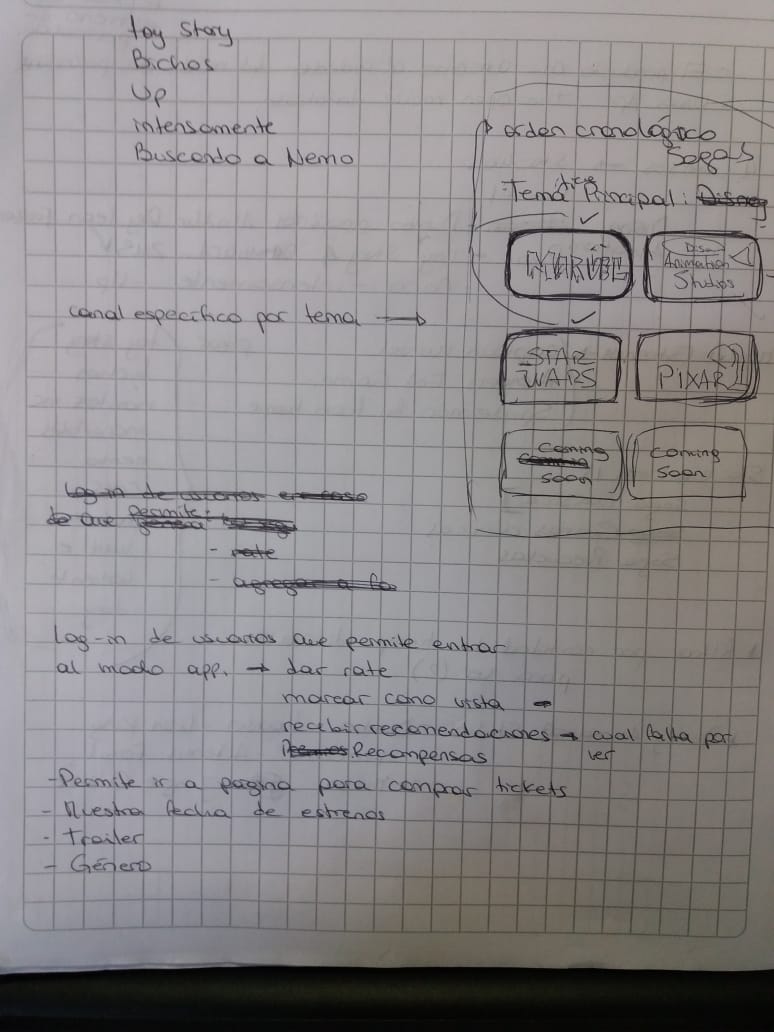 toy story
Bichos
Up
intensamente
Buscando a Nemo
orden cronológico
Sagas
Tema Principal: Disney
MARVEL
Animation
Studios
canal específico por tema →
STAR
WARS
PIXAR
coming
soon
coming
soon
Log-in de usuarios en caso
de que permite:
- rate
- agregar a fa
Log-in de usuarios que permite entrar
al modo app. → dar rate
marcar como vista -
recibir recomendaciones → cual falta por
ver
Recompensas
- Permite ir a pagina para comprar tickets
- Muestra fecha de estrenos
- Trailer
- Género